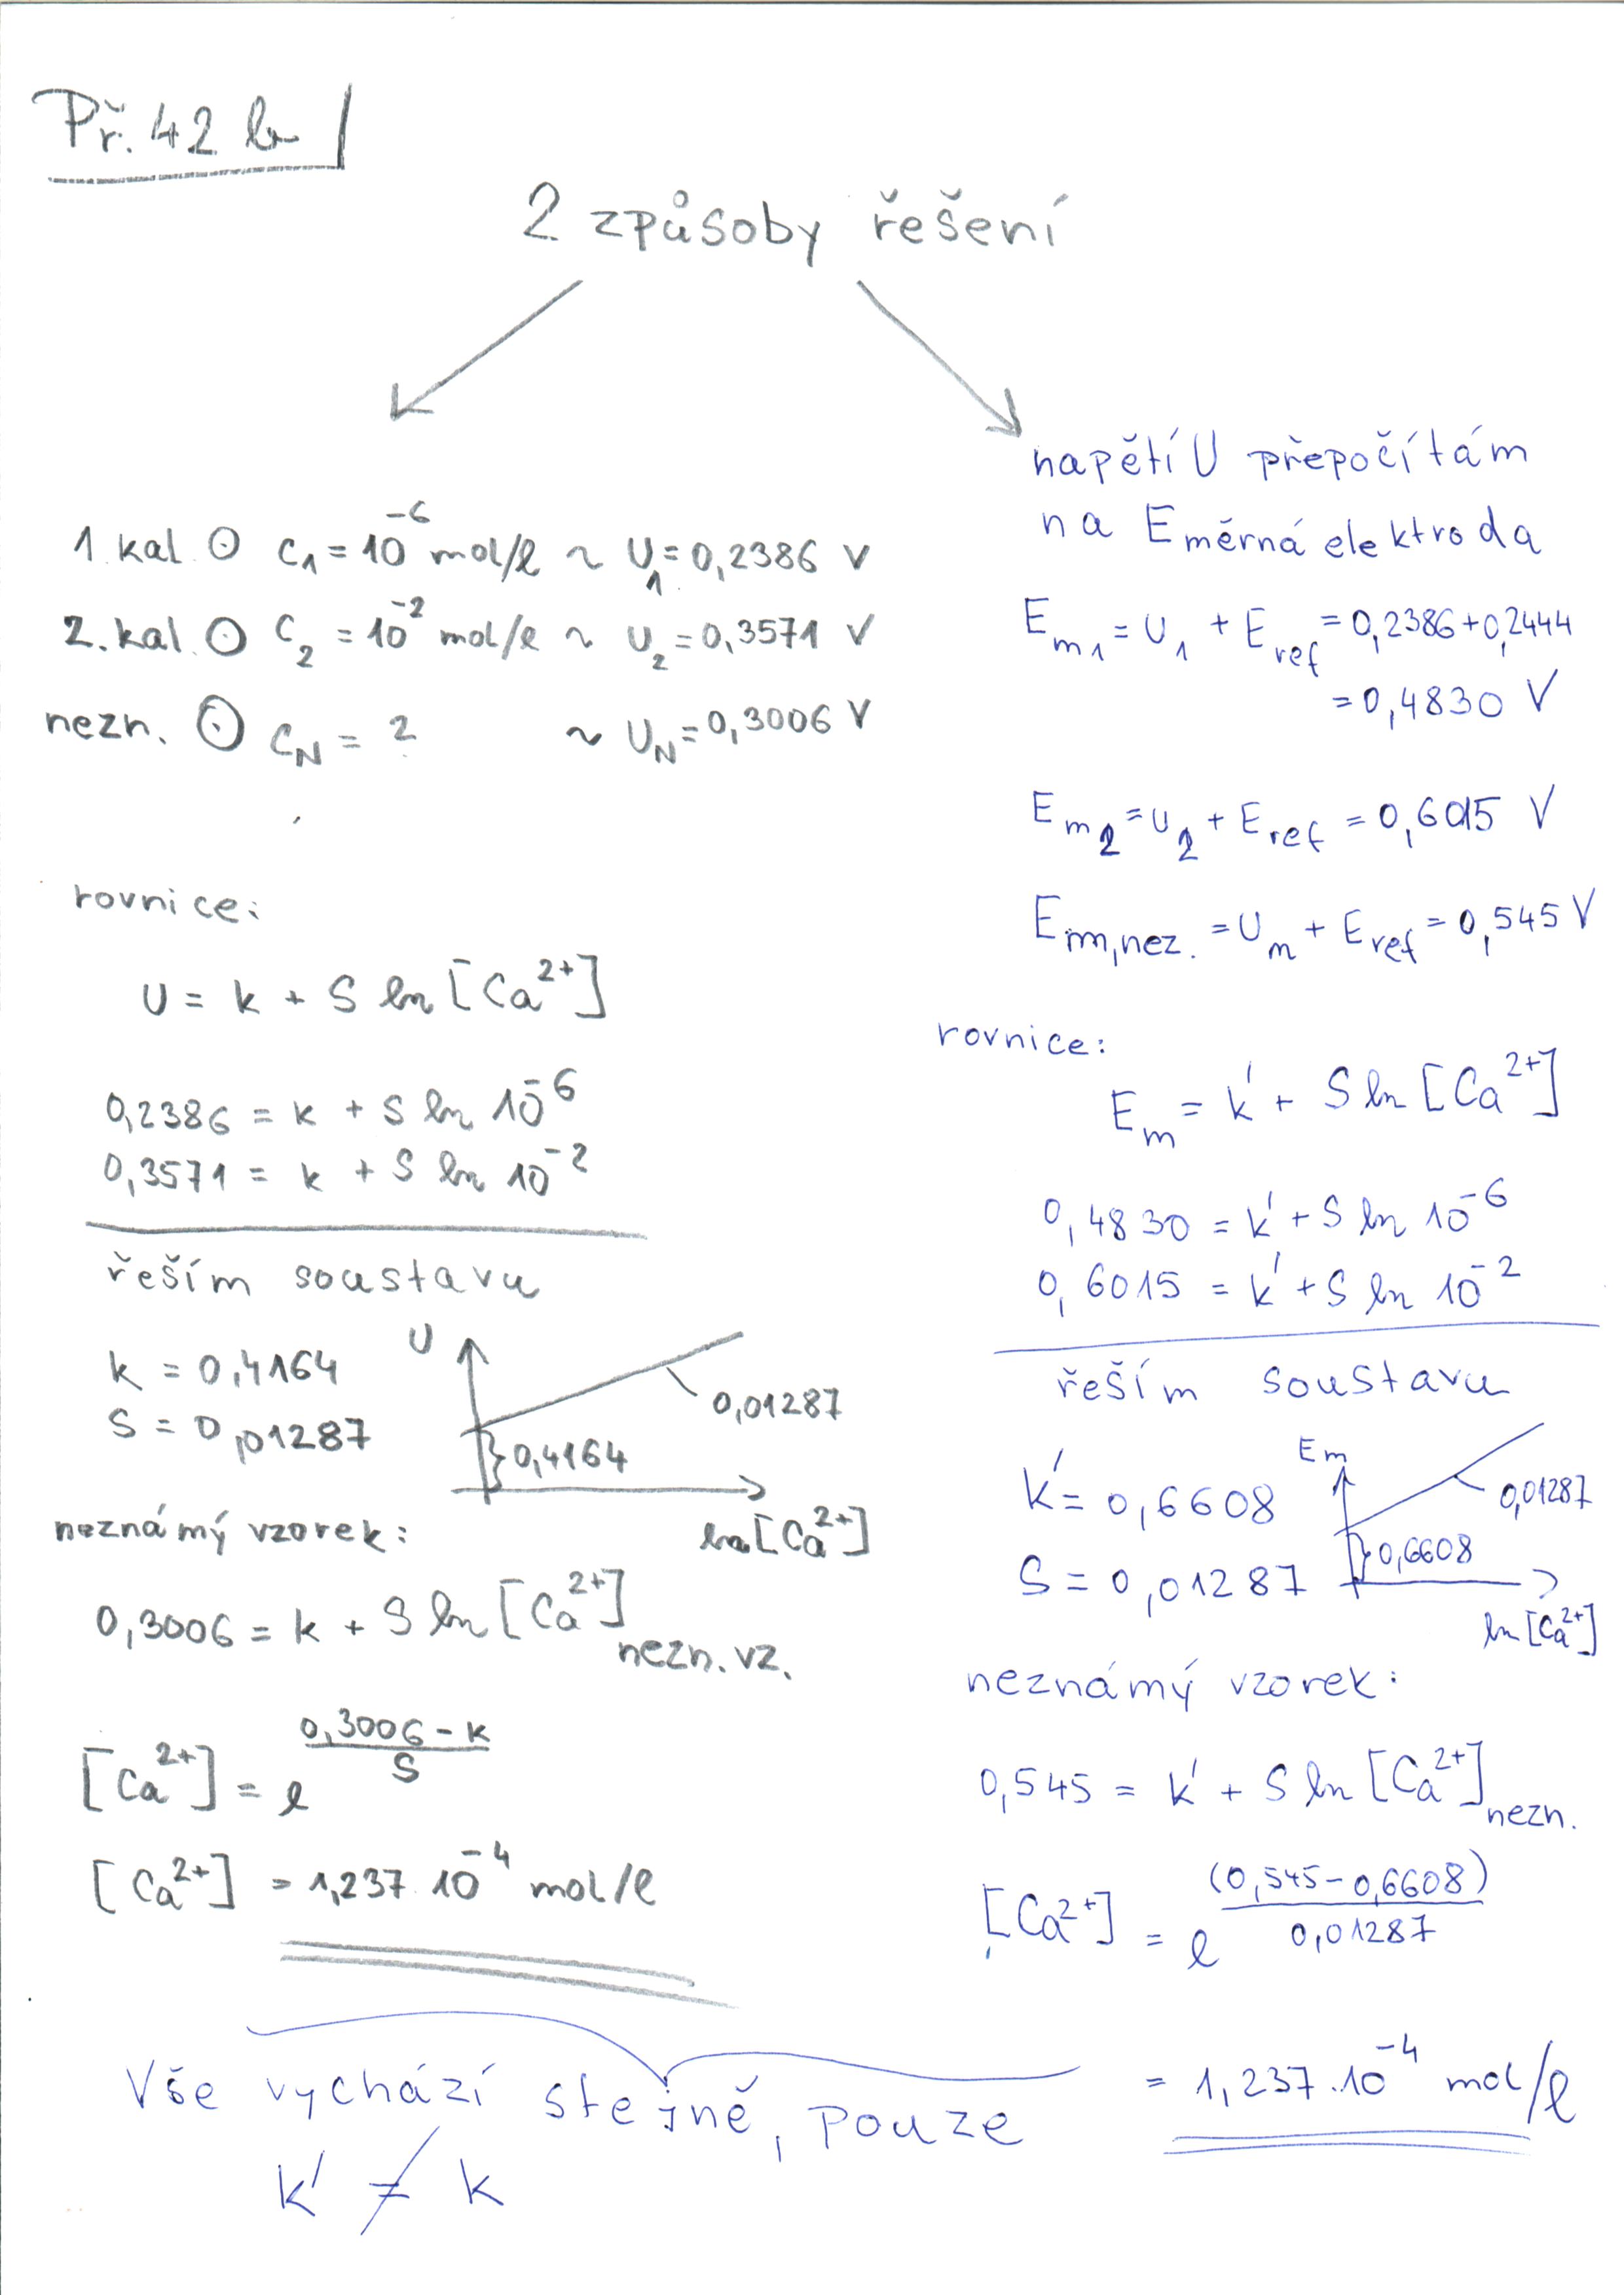 Př. 42 b
2 způsoby řešení
1. kal. ⊙ c₁ = 10⁻⁶ mol/l ~ U₁ = 0,2386 V
2. kal. ⊙ c₂ = 10⁻² mol/l ~ U₂ = 0,3571 V
nezn. ⊙ c_N = ? ~ U_N = 0,3006 V
rovnice:
U = k + S ln [Ca²⁺]
0,2386 = k + S ln 10⁻⁶
0,3571 = k + S ln 10⁻²
řeším soustavu
k = 0,4164
S = 0,01287
U
0,01287
0,4164
ln [Ca²⁺]
neznámý vzorek:
0,3006 = k + S ln [Ca²⁺] nezn. vz.
[Ca²⁺] = e^((0,3006 - k)/S)
[Ca²⁺] = 1,237 10⁻⁴ mol/l
napětí U přepočítám
na E měrná elektroda
E_m1 = U₁ + E_ref = 0,2386 + 0,2444
= 0,4830 V
E_m2 = U₂ + E_ref = 0,6015 V
E_m,nez. = U_m + E_ref = 0,545 V
rovnice:
E_m = k' + S ln [Ca²⁺]
0,4830 = k' + S ln 10⁻⁶
0,6015 = k' + S ln 10⁻²
řeším soustavu
k' = 0,6608
S = 0,01287
E_m
0,01287
0,6608
ln [Ca²⁺]
neznámý vzorek:
0,545 = k' + S ln [Ca²⁺] nezn.
[Ca²⁺] = e^((0,545 - 0,6608)/0,01287)
= 1,237 . 10⁻⁴ mol/l
Vše vychází stejně, pouze
k' ≠ k